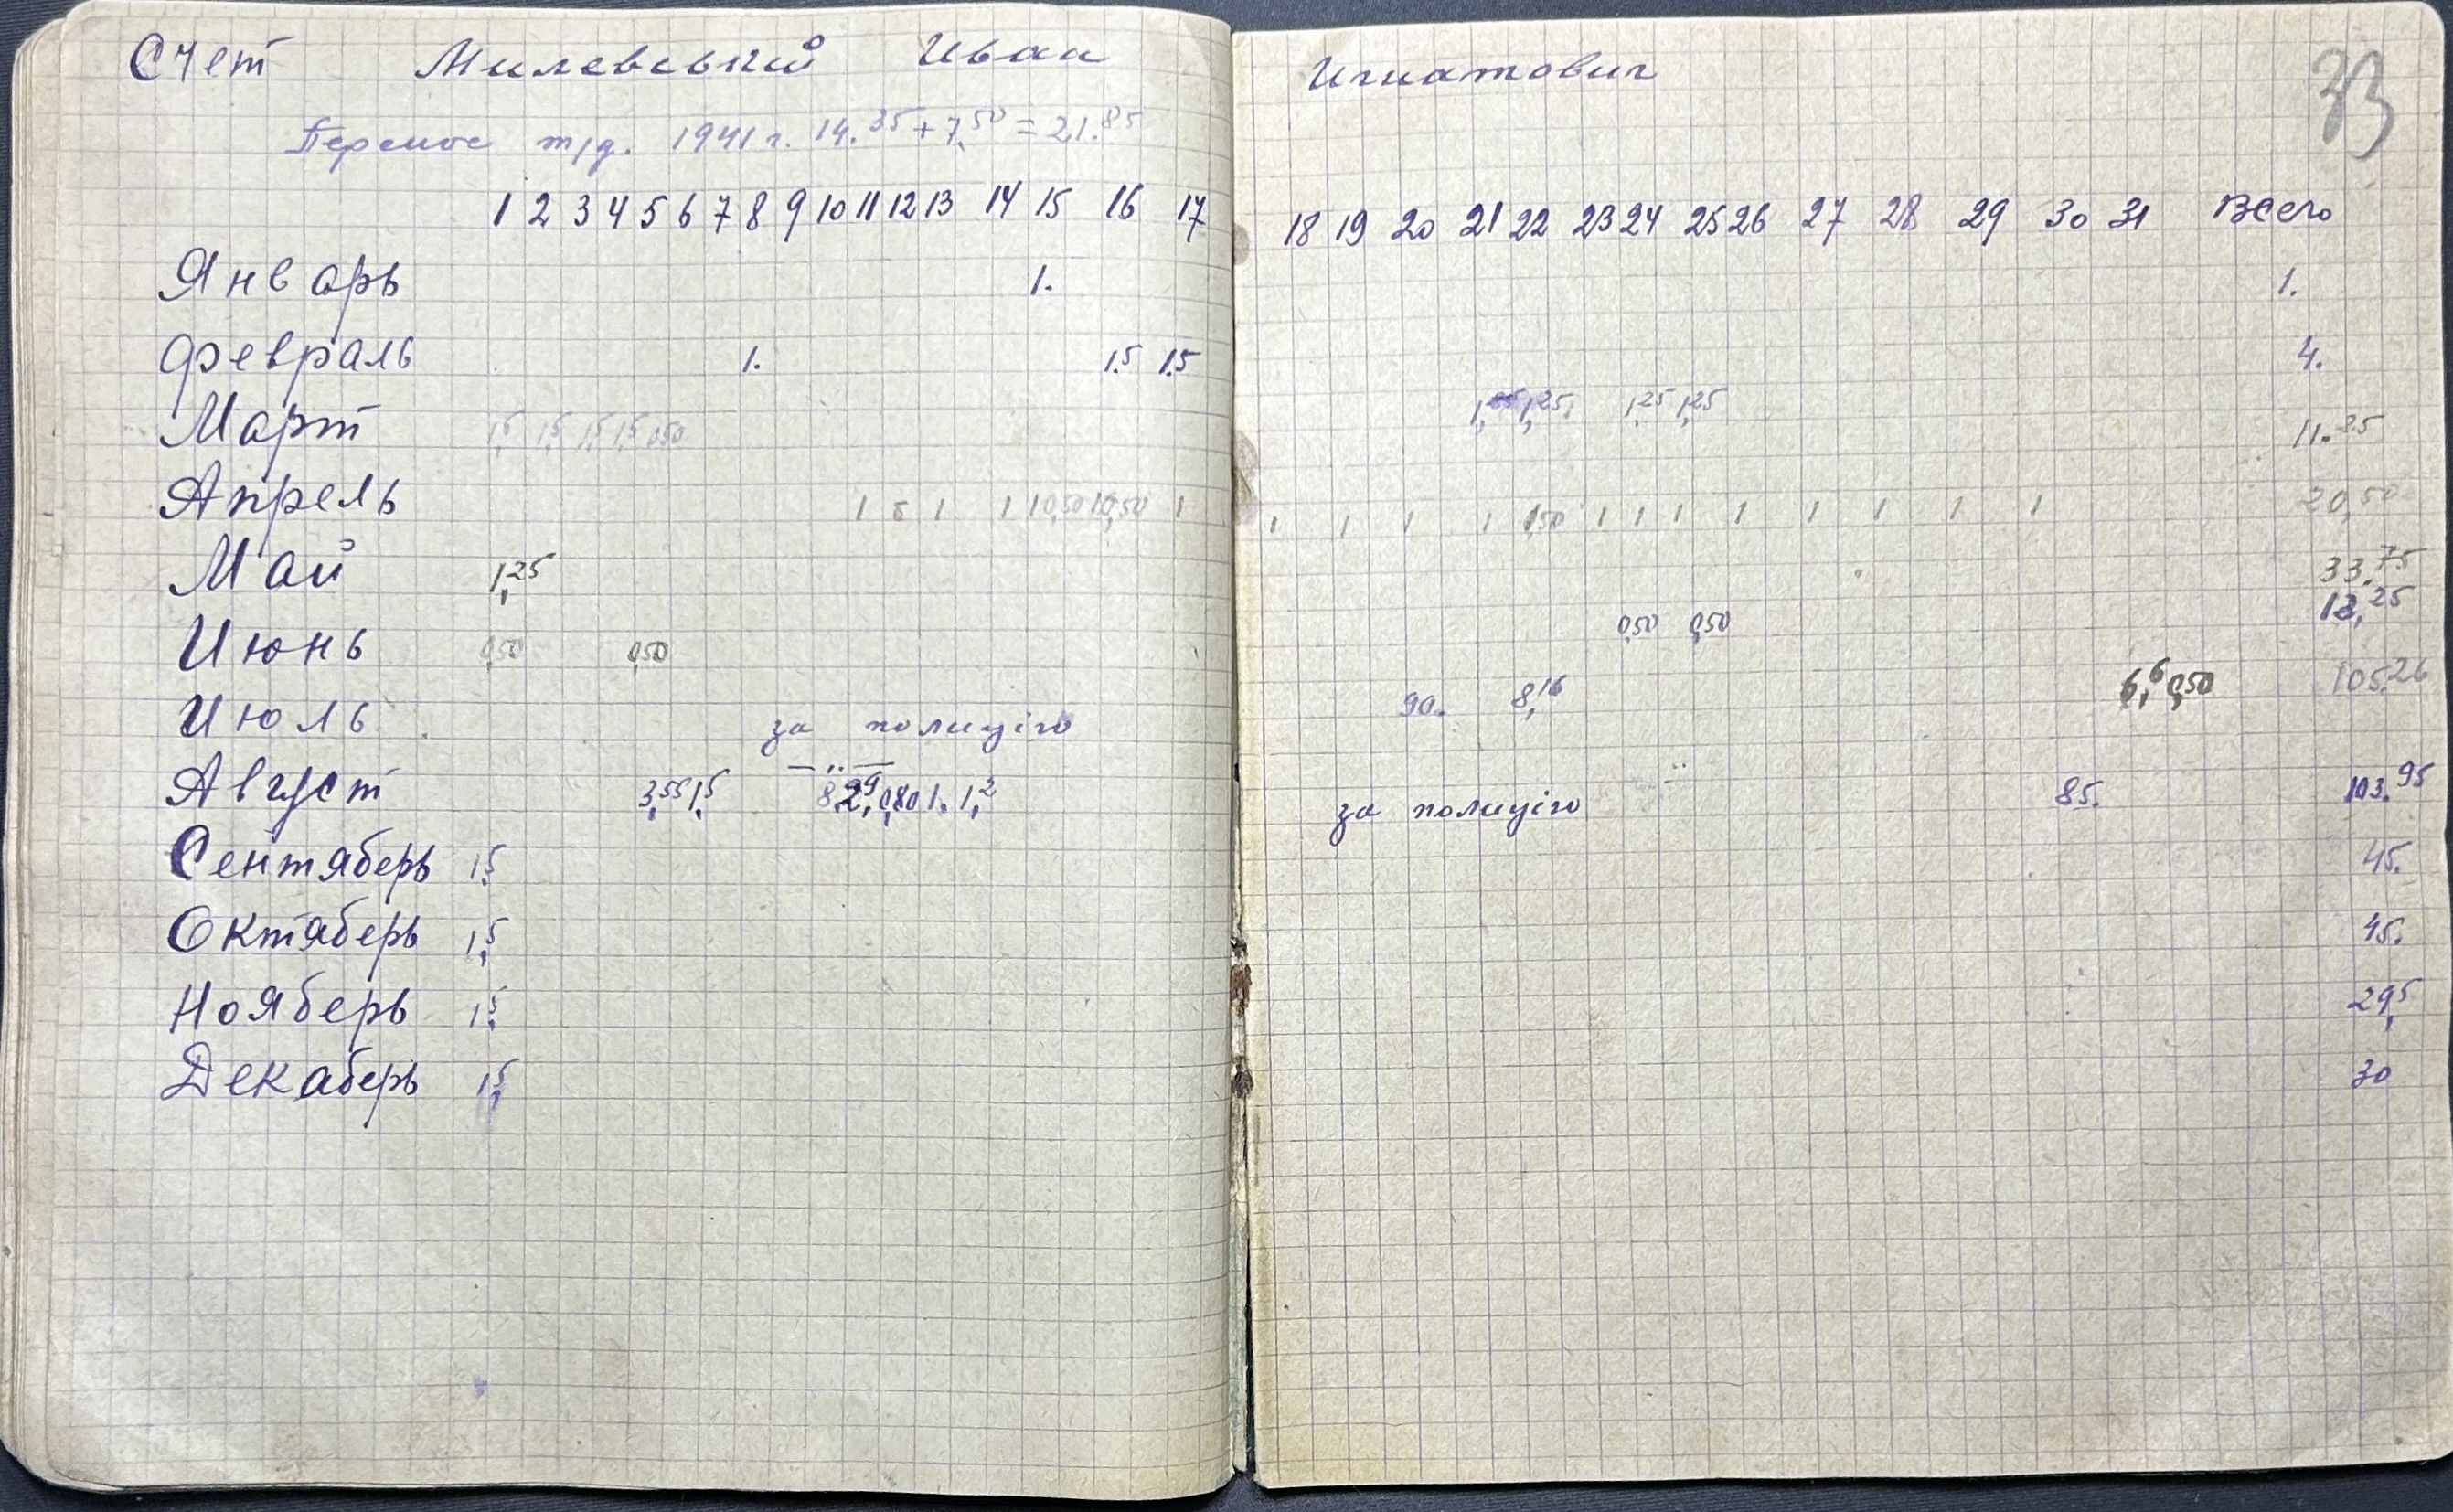 Счет Милевський Иван Игнатович
33
Перенос т/д. 1941 г. 14.35 + 7,50 = 21.85
1 2 3 4 5 6 7 8 9 10 11 12 13 14 15 16 17 18 19 20 21 22 23 24 25 26 27 28 29 30 31 Всего
Январь 1. 1.
Февраль 1. 1.5 1.5 4.
Март 1,5 1,5 1,5 1,5 0,50 1,25 1,25 1,25 1,25 11.25
Апрель 1 1 1 1 1 1 1 1 1 1,50 1 1 1 1 1 1 1 1 20,50
Май 1,25 33.75
Июнь 0,50 0,50 0,50 0,50 12,25
Июль за полицію 90. 8,16 6,6 0,50 105,26
— ,, —
Август 3,55 1,5 8. 2,9 0,80 1. 1,2 за полицію 85. 103.95
Сентяберь 1,5 45.
Октяберь 1,5 45.
Нояберь 1,5 29,5
Декаберь 1,5 30